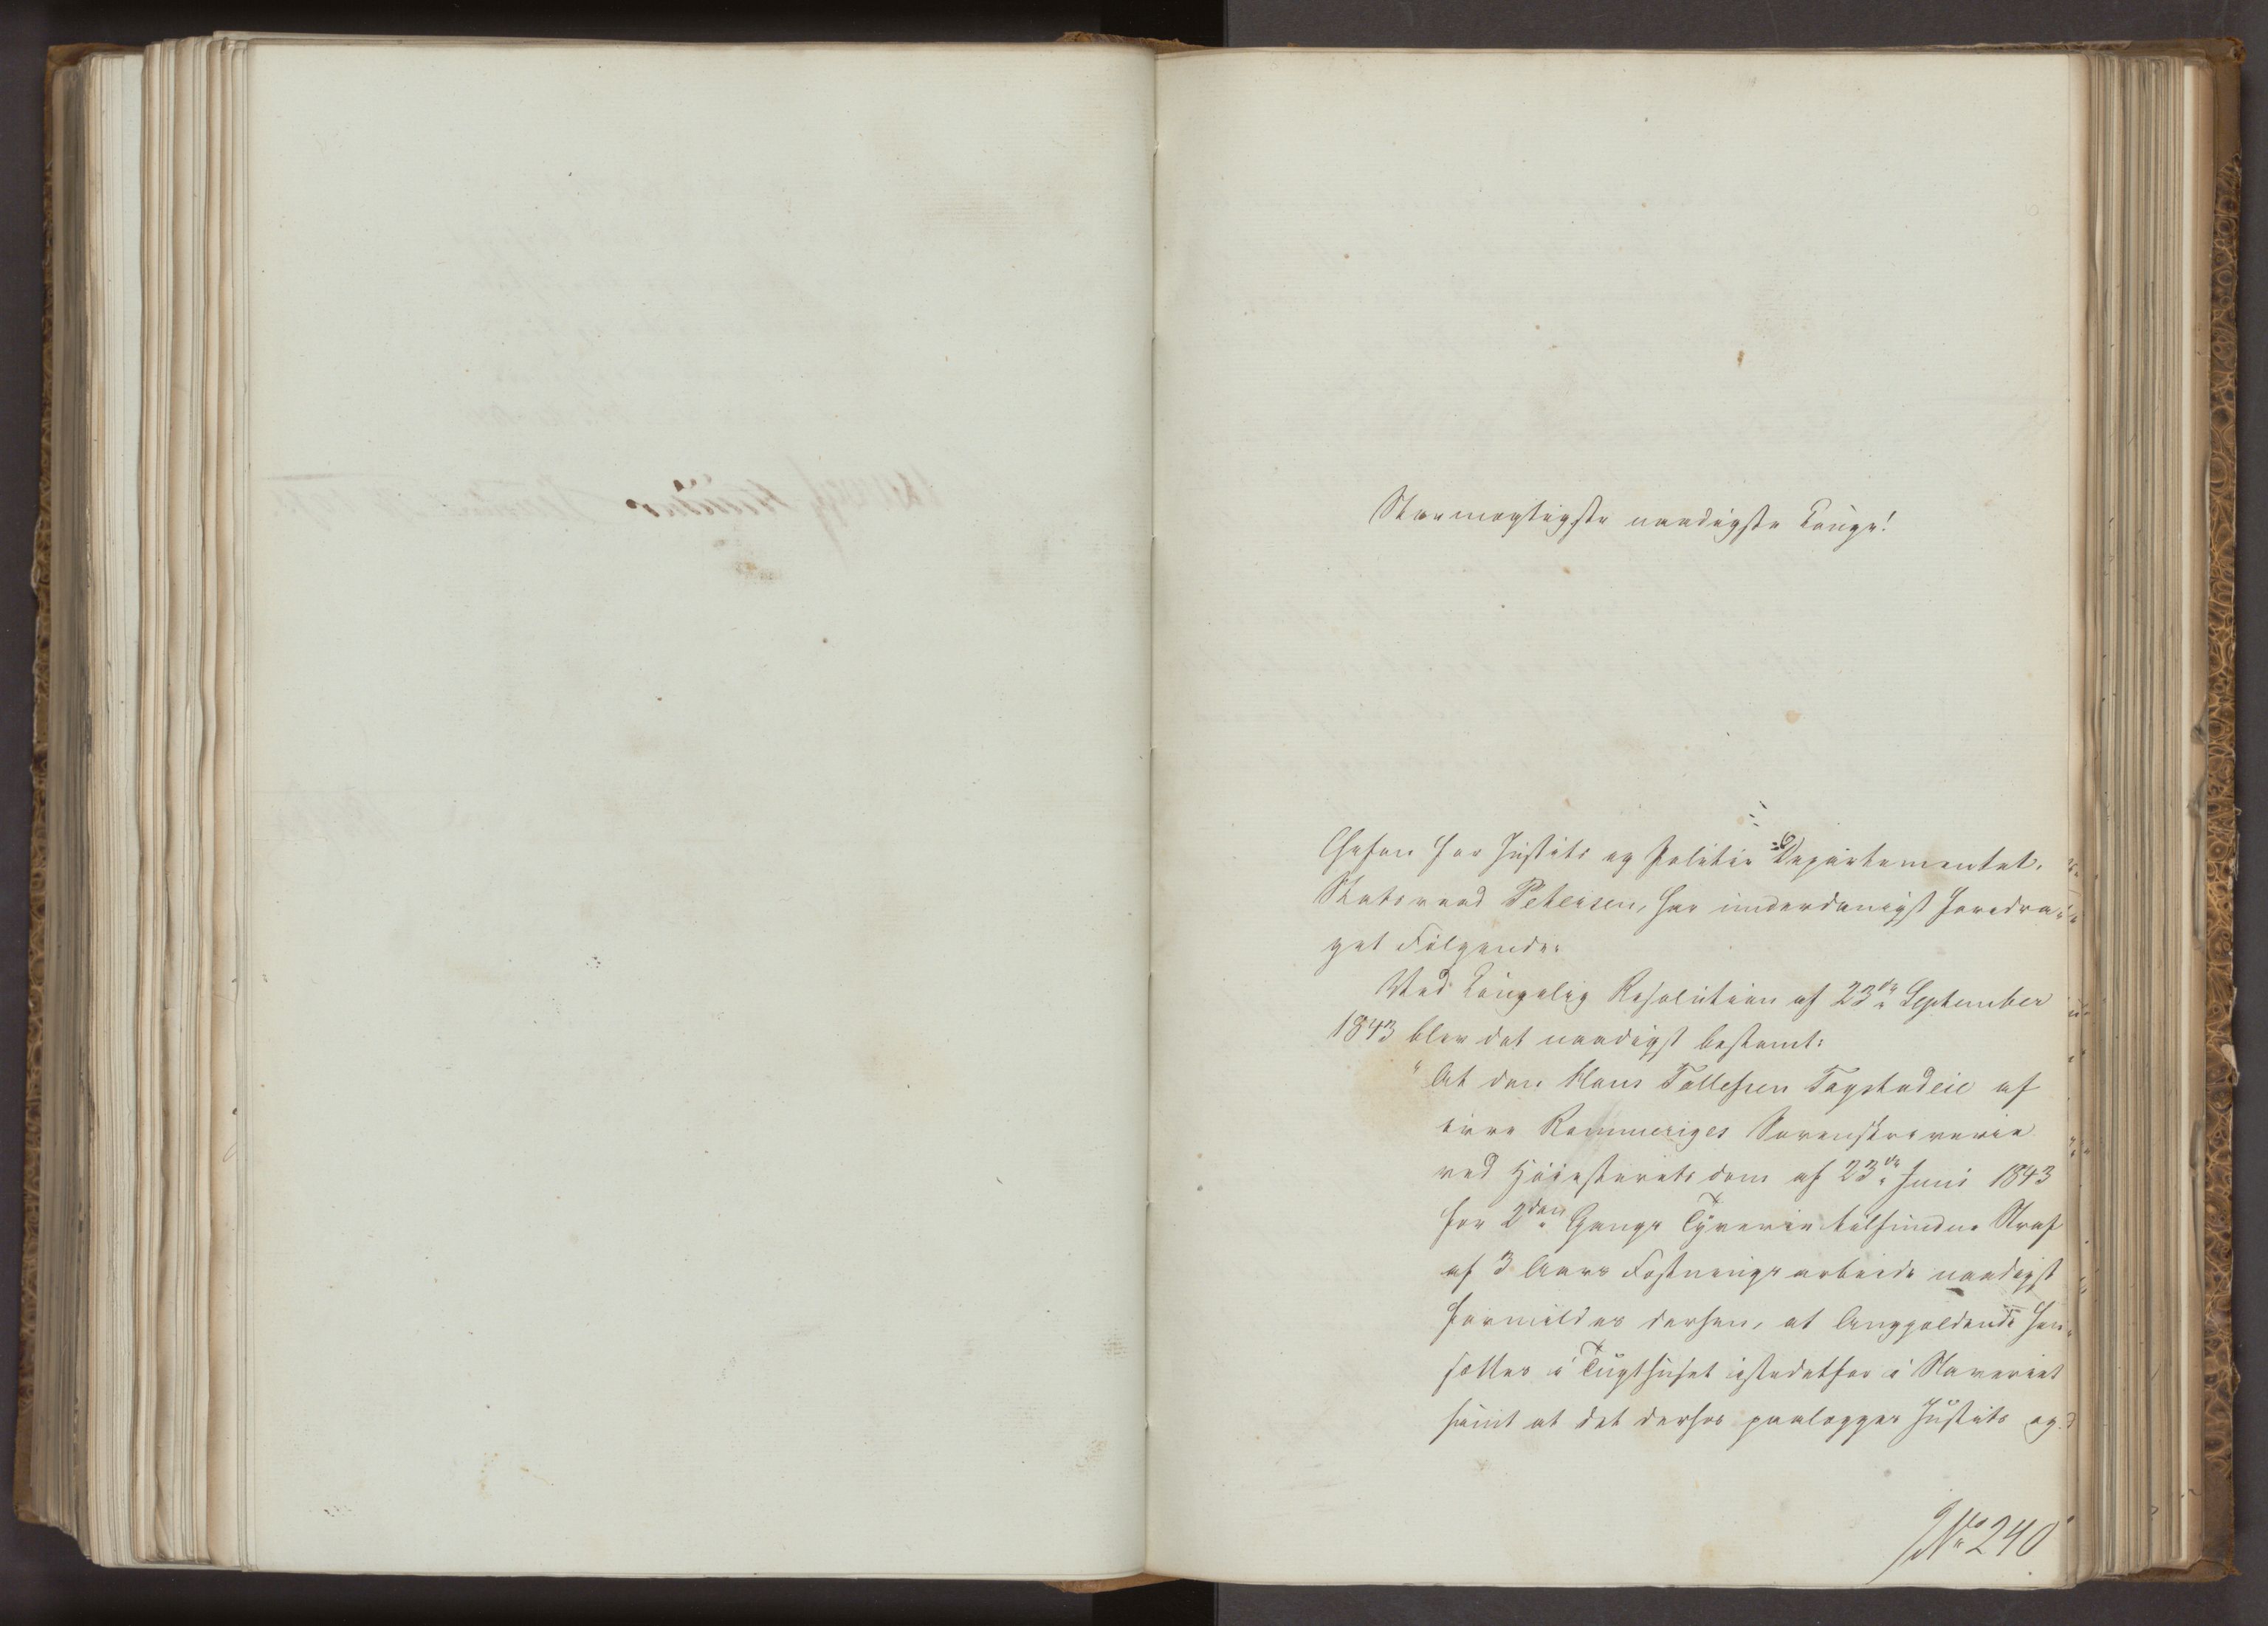 Stormægtigste naadigste Konge!
Chefen for Justits og Politie Departementet,
Statsraad Petersen, har underdanigst foredra-
get Følgende:
Ved kongelig Resolution af 23de September
1843 blev det naadigst bestemt:
"At den Hans Tollefsen Tagstadeie af
øvre Rommeriges Sorenskriverie
ved Høiesterets dom af 23de Juni 1843
for 2den Gangs Tyverie tilfundne Straf
af 3 Aars Fæstningsarbeide naadigst
formildes derhen, at Angjældende hen-
sættes i Tugthuset istedetfor i Slaveriet
samt at det derhos paalægges Justits og
No 240